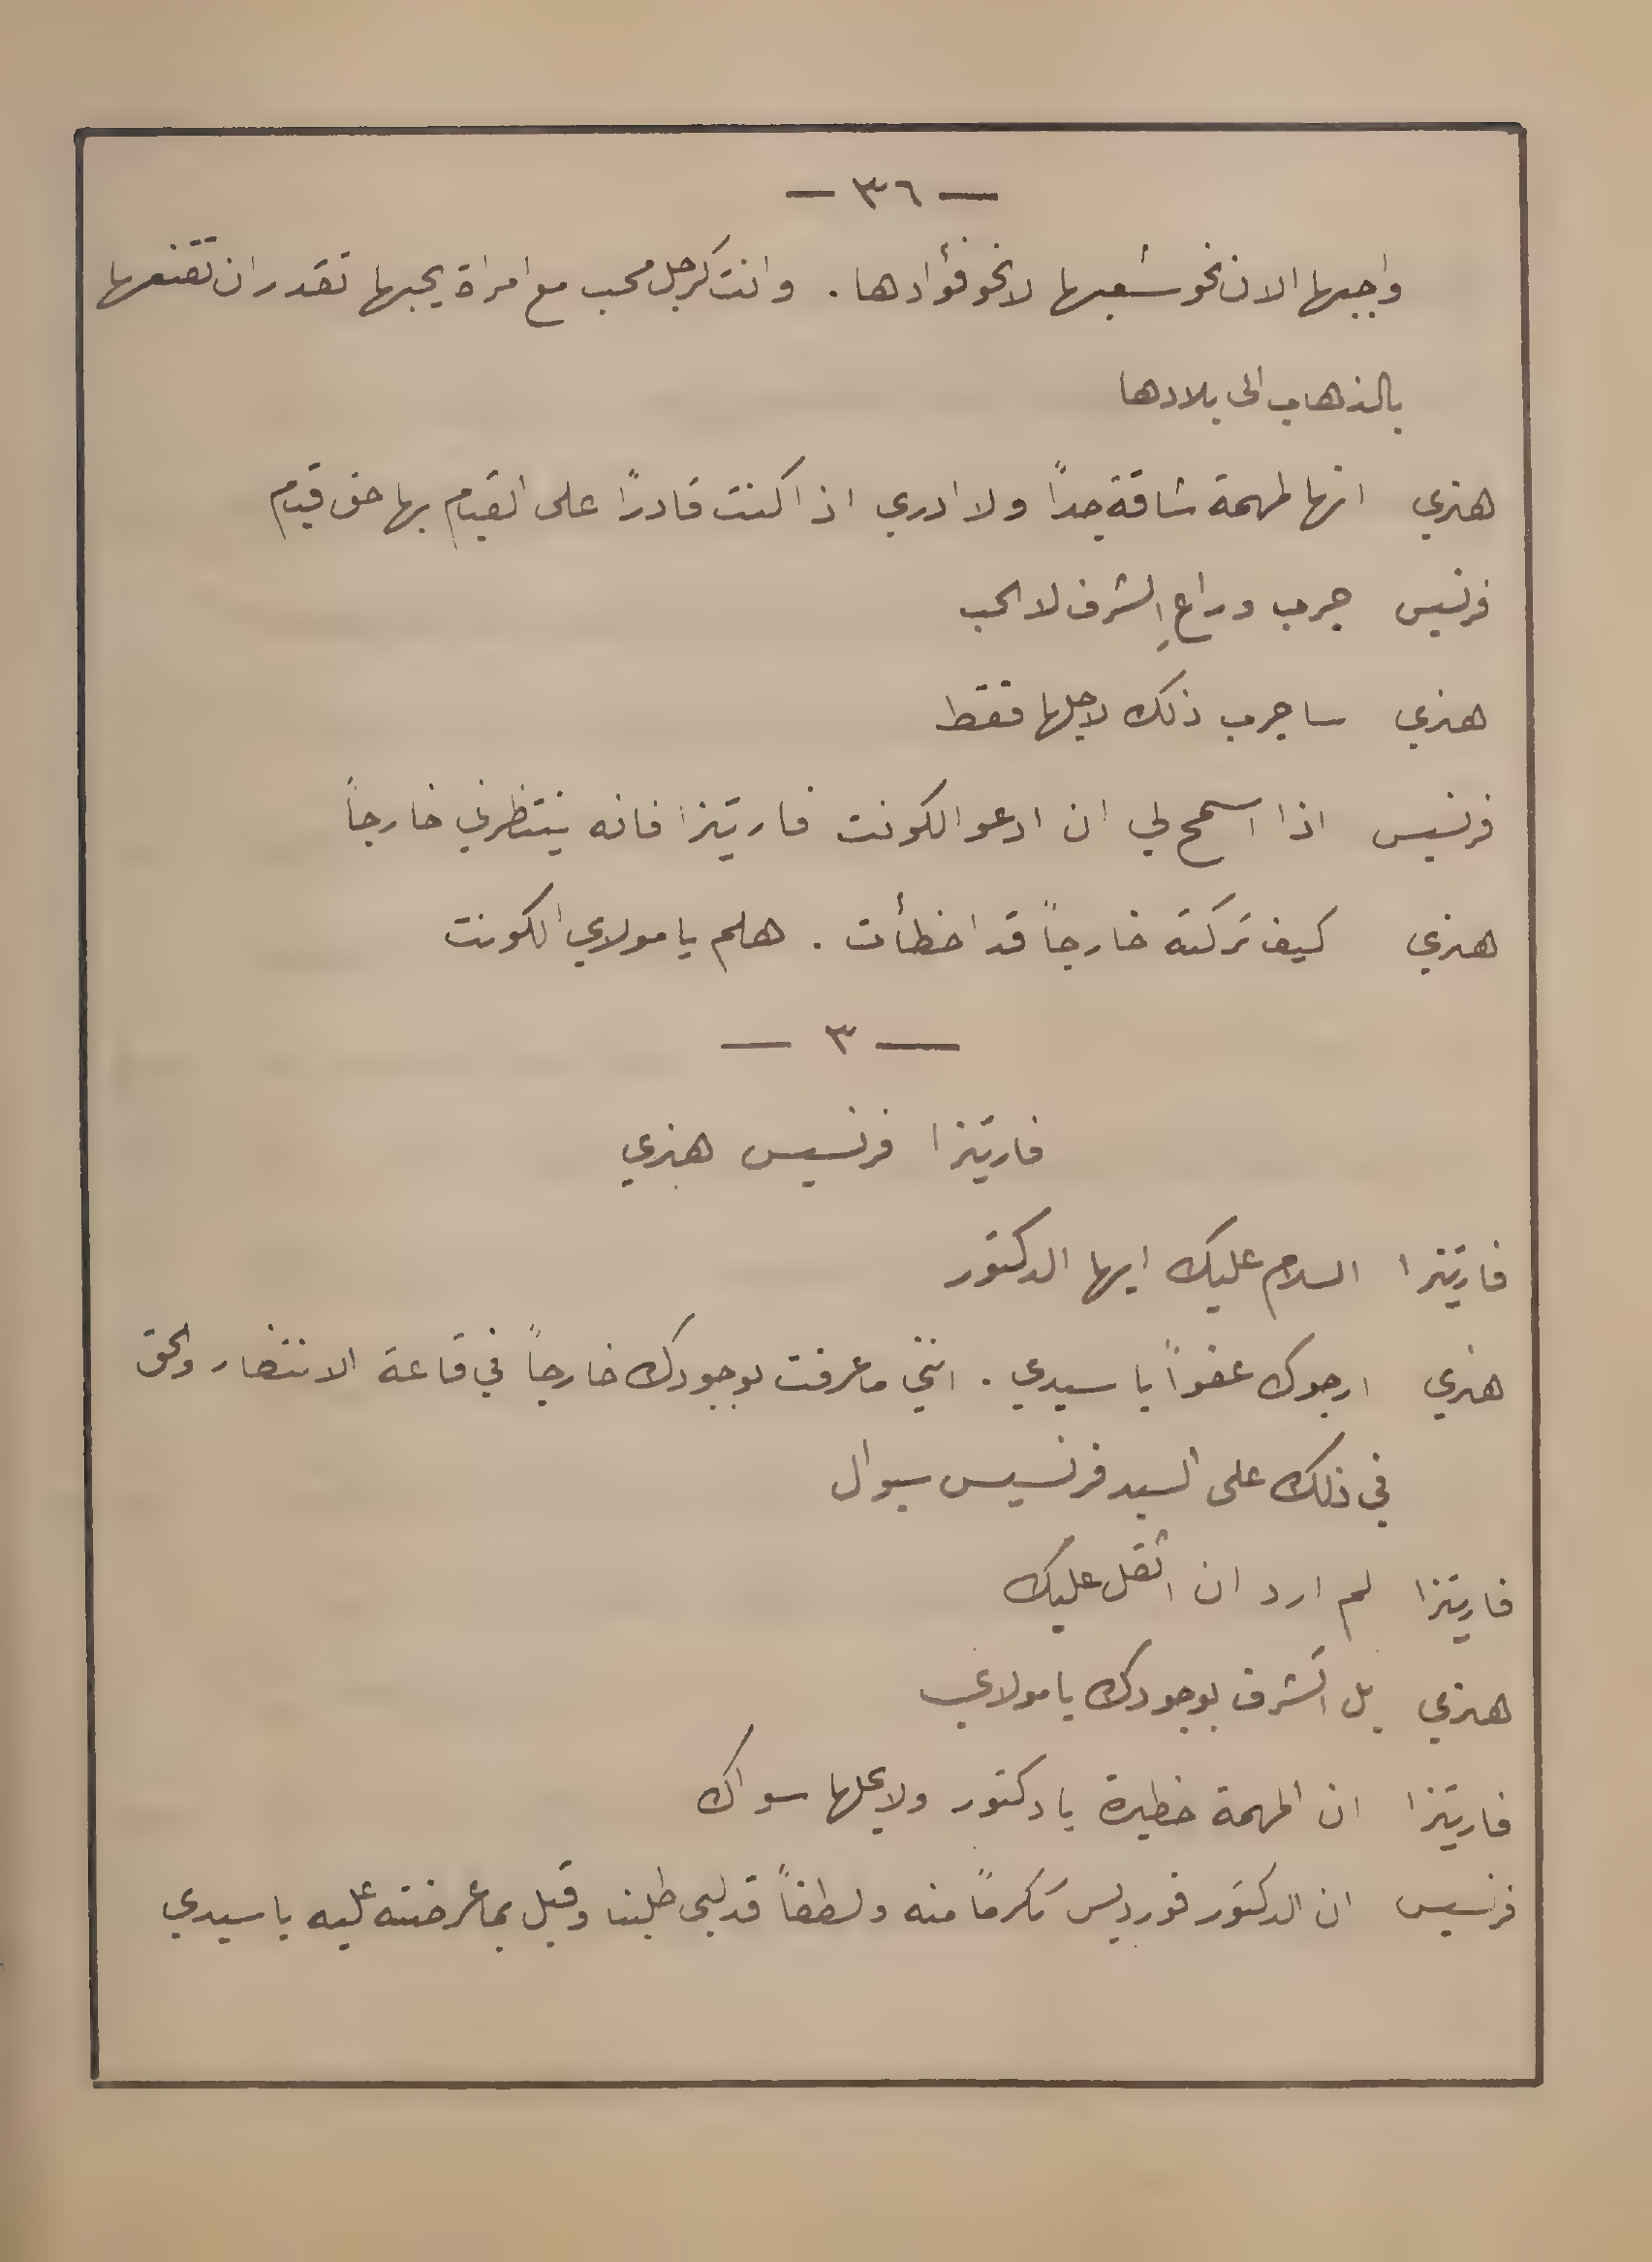 — ٣٦ —
واجبها الان نحو شعبها لا نحو فؤادها . وانت كرجل محب مع امراة يحبها تقدر ان تقنعها
بالذهاب الى بلادها
هنري انها لمهمة شاقة جداً ولا ادري اذا كنت قادرًا على القيام بها حق قيام
فرنسيس جرب وراعِ الشرف لا الحب
هنري ساجرب ذلك لاجلها فقط
فرنسيس اذا اسمح لي ان ادعو الكونت فاريتزا فانه ينتظرني خارجاً
هنري كيف تركته خارجاً قد اخطأت . هلم يا مولاي الكونت
— ٣ —
فاريتزا فرنسيس هنري
فاريتزا السلام عليك ايها الدكتور
هنري ارجوك عفواً يا سيدي . انني ما عرفت بوجودك خارجاً في قاعة الانتظار والحق
في ذلك على السيد فرنسيس سوال
فاريتزا لم ارد ان اثقل عليك
هنري بل اتشرف بوجودك يا مولاي
فاريتزا ان المهمة خطيرة يا دكتور ولا يحلها سواك
فرنسيس ان الدكتور فورديس تكرماً منه ولطفاً قد لبى طلبنا وقبل بما عرضته عليه يا سيدي